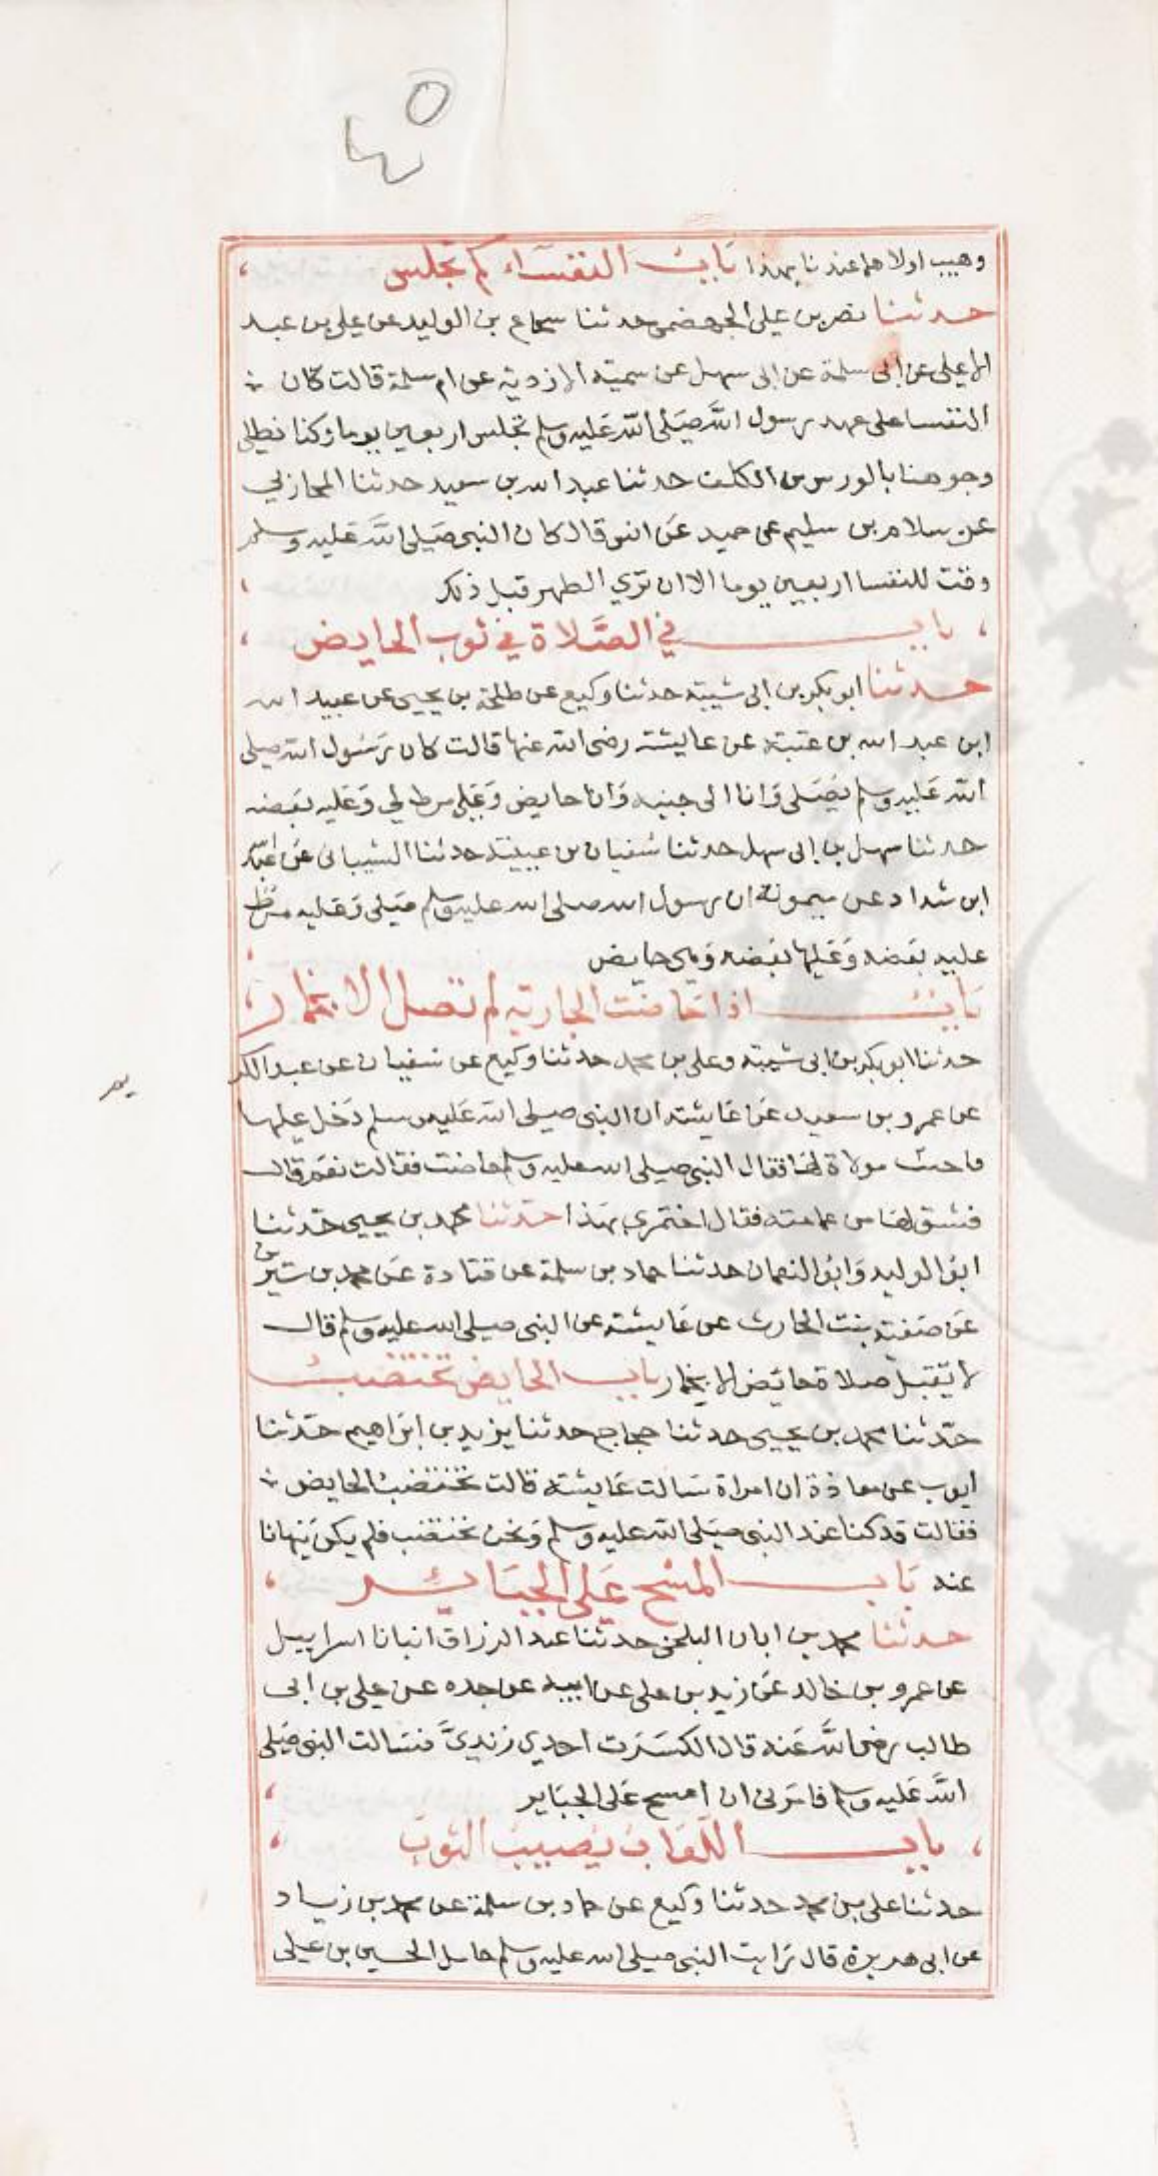 ٥٤
وهيب اولاهما عندنا بهذا باب النفساء كم تجلس
حدثنا نصر بن علي الجهضمي حدثنا شجاع بن الوليد عن علي بن عبد
الاعلى عن ابي سلمة عن ابي سهل عن سمية الازدية عن ام سلمة قالت كان
النفسا على عهد رسول الله صلى الله عليه وسلم تجلس اربعين يوما وكنا نطلي
وجوهنا بالورس من الكلف حدثنا عبد الله بن سعيد حدثنا المحاربي
عن سلام بن سليم عن حميد عن انس قال كان النبي صلى الله عليه وسلم
وقت للنفسا اربعين يوما الا ان تري الطهر قبل ذلك
باب في الصلاة في ثوب الحايض
حدثنا ابو بكر بن ابي شيبة حدثنا وكيع عن طلحة بن يحيى عن عبيد الله
ابن عبد الله بن عتبة عن عايشة رضى الله عنها قالت كان رسول الله صلى
الله عليه وسلم يصلى وانا الى جنبه وانا حايض وعلي مرط لي وعليه بعضه
حدثنا سهل بن ابي سهل حدثنا سفيان بن عيينة حدثنا الشيباني عن عبد الله
ابن شداد عن ميمونة ان رسول الله صلى الله عليه وسلم صلى وعليه مرط
عليه بعضه وعليها بعضه وهي حايض
باب اذا حاضت الجارية لم تصل الا بخمار
حدثنا ابو بكر بن ابي شيبة وعلي بن محمد حدثنا وكيع عن سفيان عن عبد الكر
يم
عن عمرو بن سعيد عن عايشة ان النبي صلى الله عليه وسلم دخل عليها
فاختبت مولاة لها فقال النبي صلى الله عليه وسلم حاضت فقالت نعم قال
فشق لها من عمامته فقال اختمري بهذا حدثنا محمد بن يحيى حدثنا
ابو الوليد وابو النعمان حدثنا حماد بن سلمة عن قتادة عن محمد بن سيرين
عن صفية بنت الحارث عن عايشة عن النبي صلى الله عليه وسلم قال
لا يقبل صلاة حائض الا بخمار باب الحايض تختضب
حدثنا محمد بن يحيى حدثنا حجاج حدثنا يزيد بن ابراهيم حدثنا
ايوب عن معاذة ان امراة سالت عايشة قالت تختضب الحايض
فقالت قد كنا عند النبي صلى الله عليه وسلم ونحن نختضب فلم يكن ينهانا
عنه باب المسح على الجباير
حدثنا محمد بن ابان البلخي حدثنا عبد الرزاق انبانا اسراييل
عن عمرو بن خالد عن زيد بن على عن ابيه عن جده عن علي بن ابى
طالب رضى الله عنه قال انكسرت احدي زندي فسالت النبي صلى
الله عليه وسلم فامرنى ان امسح على الجباير
باب اللعاب يصيب الثوب
حدثنا على بن محمد حدثنا وكيع عن حماد بن سلمة عن محمد بن زياد
عن ابى هريرة قال رايت النبي صلى الله عليه وسلم حامل الحسين بن على